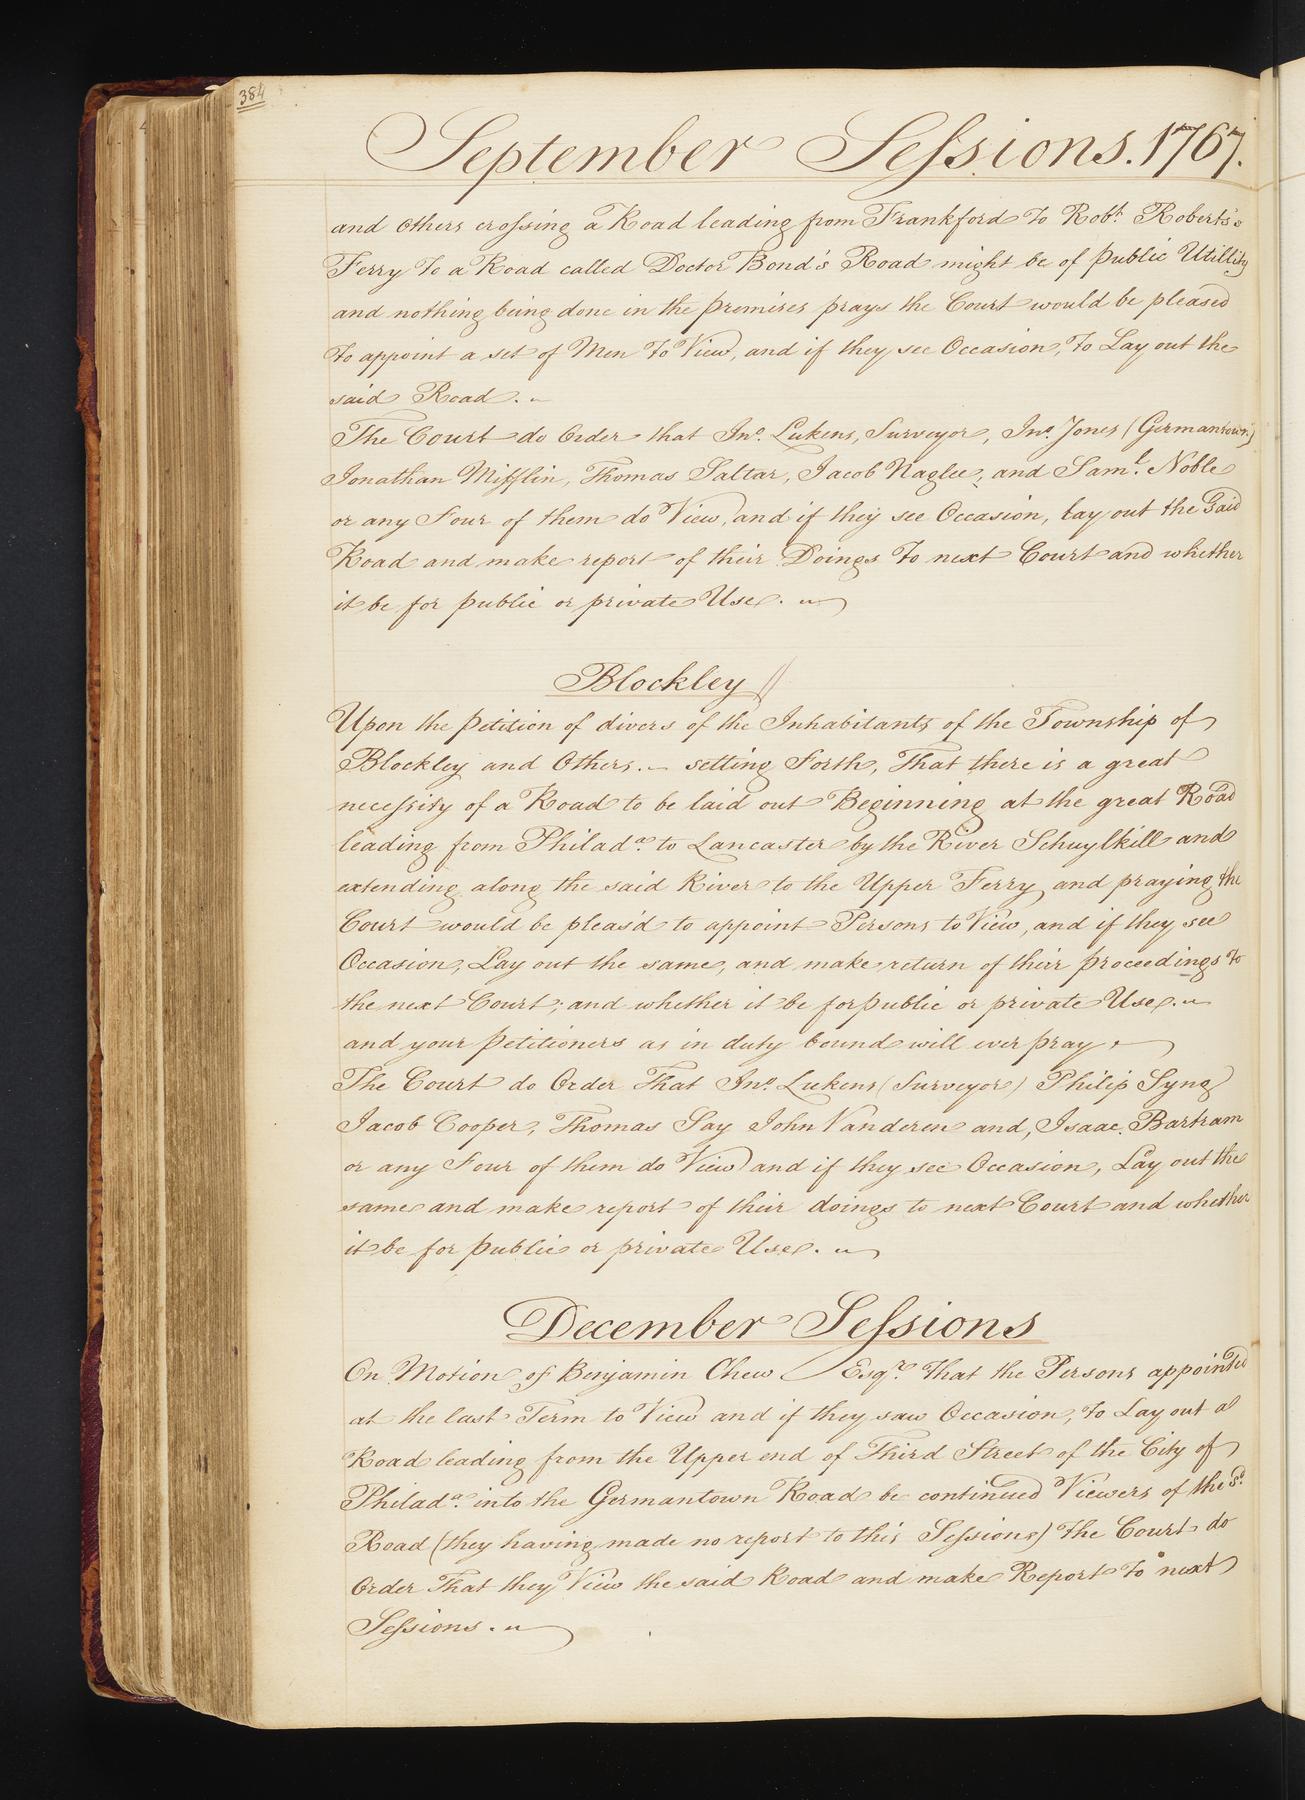 384
September Sessions. 1767.
and Others crossing a Road leading from Frankford to Robt. Roberts's
Ferry to a Road called Doctor Bond's Road might be of Public Utillity
and nothing being done in the premises prays the Court would be pleased
to appoint a set of Men to View, and if they see Occasion, to Lay out the
said Road.
The Court do Order that Jno. Lukens, Surveyor, Jno. Jones (Germantown)
Jonathan Mifflin, Thomas Saltar, Jacob Naglee, and Saml. Noble
or any Four of them do View, and if they see Occasion, lay out the Said
Road and make report of their Doings to next Court and whether
it be for public or private Use.
Blockley
Upon the Petition of divers of the Inhabitants of the Township of
Blockley and Others. setting Forth, That there is a great
necessity of a Road to be laid out Beginning at the great Road
leading from Philada. to Lancaster by the River Schuylkill and
extending along the said River to the Upper Ferry and praying the
Court would be pleas'd to appoint Persons to View, and if they see
Occasion, Lay out the same, and make return of their proceedings to
the next Court; and whether it be for public or private Use.
and your Petitioners as in duty bound will ever pray
The Court do Order That Jno. Lukens (Surveyor) Philip Syng
Jacob Cooper, Thomas Say John Vanderen and, Isaac Bartram
or any Four of them do View and if they see Occasion, Lay out the
same and make report of their doings to next Court and whether
it be for public or private Use.
December Sessions
On Motion of Benjamin Chew Esqr. That the Persons appointed
at the last Term to View and if they saw Occasion, to Lay out a
Road leading from the Upper end of Third Street of the City of
Philada. into the Germantown Road be continued Viewers of the sd.
Road (they having made no report to this Sessions) The Court do
Order That they View the said Road and make Report to next
Sessions.